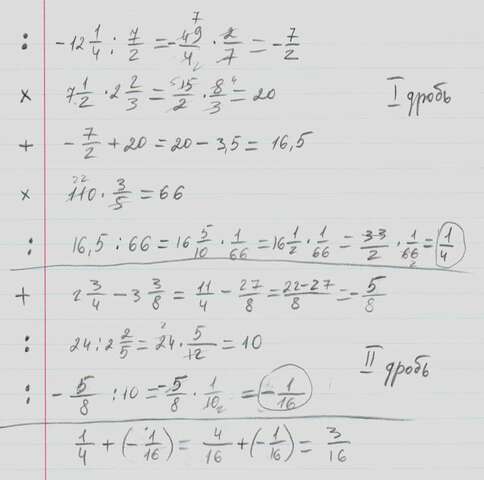 : -12 1/4 : 7/2 = -49/4 · 2/7 = -7/2
× 7 1/2 · 2 2/3 = 15/2 · 8/3 = 20
I дробь
+ -7/2 + 20 = 20 - 3,5 = 16,5
× 110 · 3/5 = 66
: 16,5 : 66 = 16 5/10 · 1/66 = 16 1/2 · 1/66 = 33/2 · 1/66 = 1/4
+ 2 3/4 - 3 3/8 = 11/4 - 27/8 = 22-27/8 = -5/8
: 24 : 2 2/5 = 24 · 5/12 = 10
II дробь
: -5/8 : 10 = -5/8 · 1/10 = -1/16
1/4 + (-1/16) = 4/16 + (-1/16) = 3/16